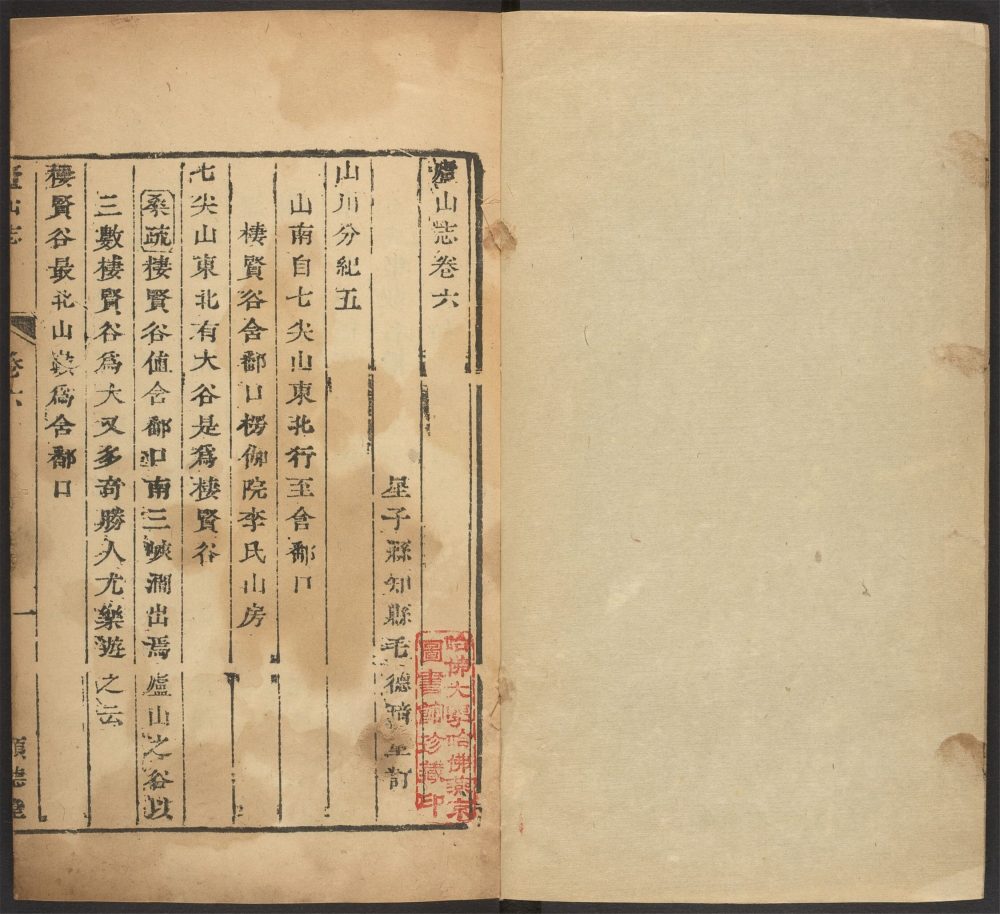 廬山志卷六
星子縣知縣毛德琦重訂
山川分紀五
山南自七尖山東北行至含鄱口
棲賢谷含鄱口楞伽院李氏山房
七尖山東北有大谷是爲棲賢谷
桑疏棲賢谷值含鄱口南三峽澗出焉廬山之谷以
三數棲賢谷爲大又多奇勝人尤樂遊之云
棲賢谷最北山㙮爲含鄱口
廬山志
卷六
一
順德堂
哈佛大學哈佛燕京
圖書館珍藏印